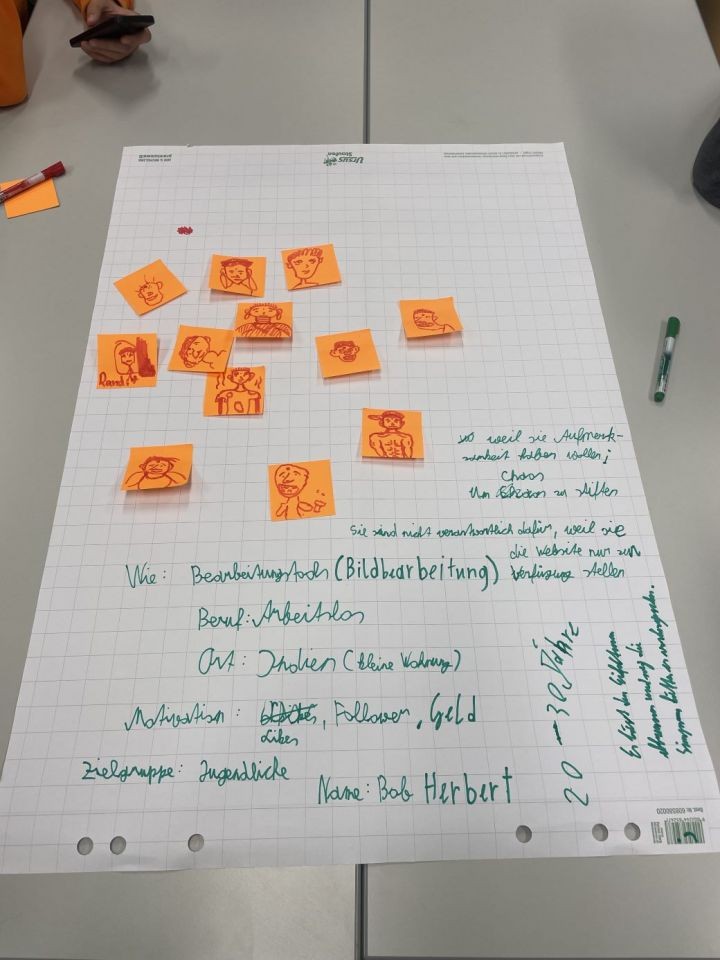 URSUS
Staufen
Randi
weil sie Aufmerk-
samkeit haben wollen;
Chaos
Um zu stiften
Sie sind nicht verantwortlich dafür, weil sie
die Website nur zur
Verfügung stellen
Wie: Bearbeitungstools (Bildbearbeitung)
Beruf: Arbeitslos
Ort: Indien (kleine Wohnung)
Motivation: Likes, Follower, Geld
Zielgruppe: Jugendliche
Name: Bob Herbert
20 - 30 Jahre
Es lässt den
die